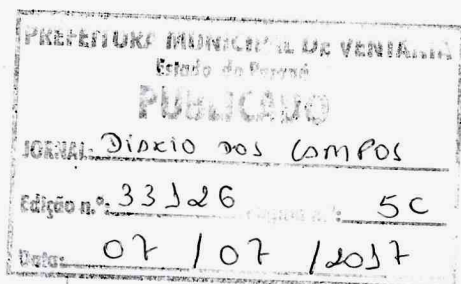 PREFEITURA MUNICIPAL DE VENTANIA
Estado do Paraná
PUBLICADO
JORNAL: DIÁRIO DOS CAMPOS
Edição n.º: 33126 Página n.º: 5C
Data: 07 / 07 / 2017